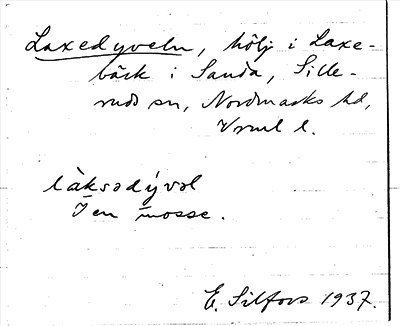 Laxedyveln, hölj i Laxe-
bäck i Sanda, Sille-
ruds sn, Nordmarks hd,
Vrml l.
làksədývəl
I en mosse.
E. Silfors 1937.